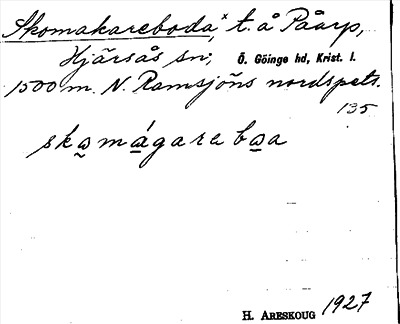 Skomakareboda,ˣ t. å Påarp,
Hjärsås sn; Ö. Göinge hd, Krist. l.
1500 m. N. Ramsjöns nordspets.
135
skømágara bøa
H. ARESKOUG 1927